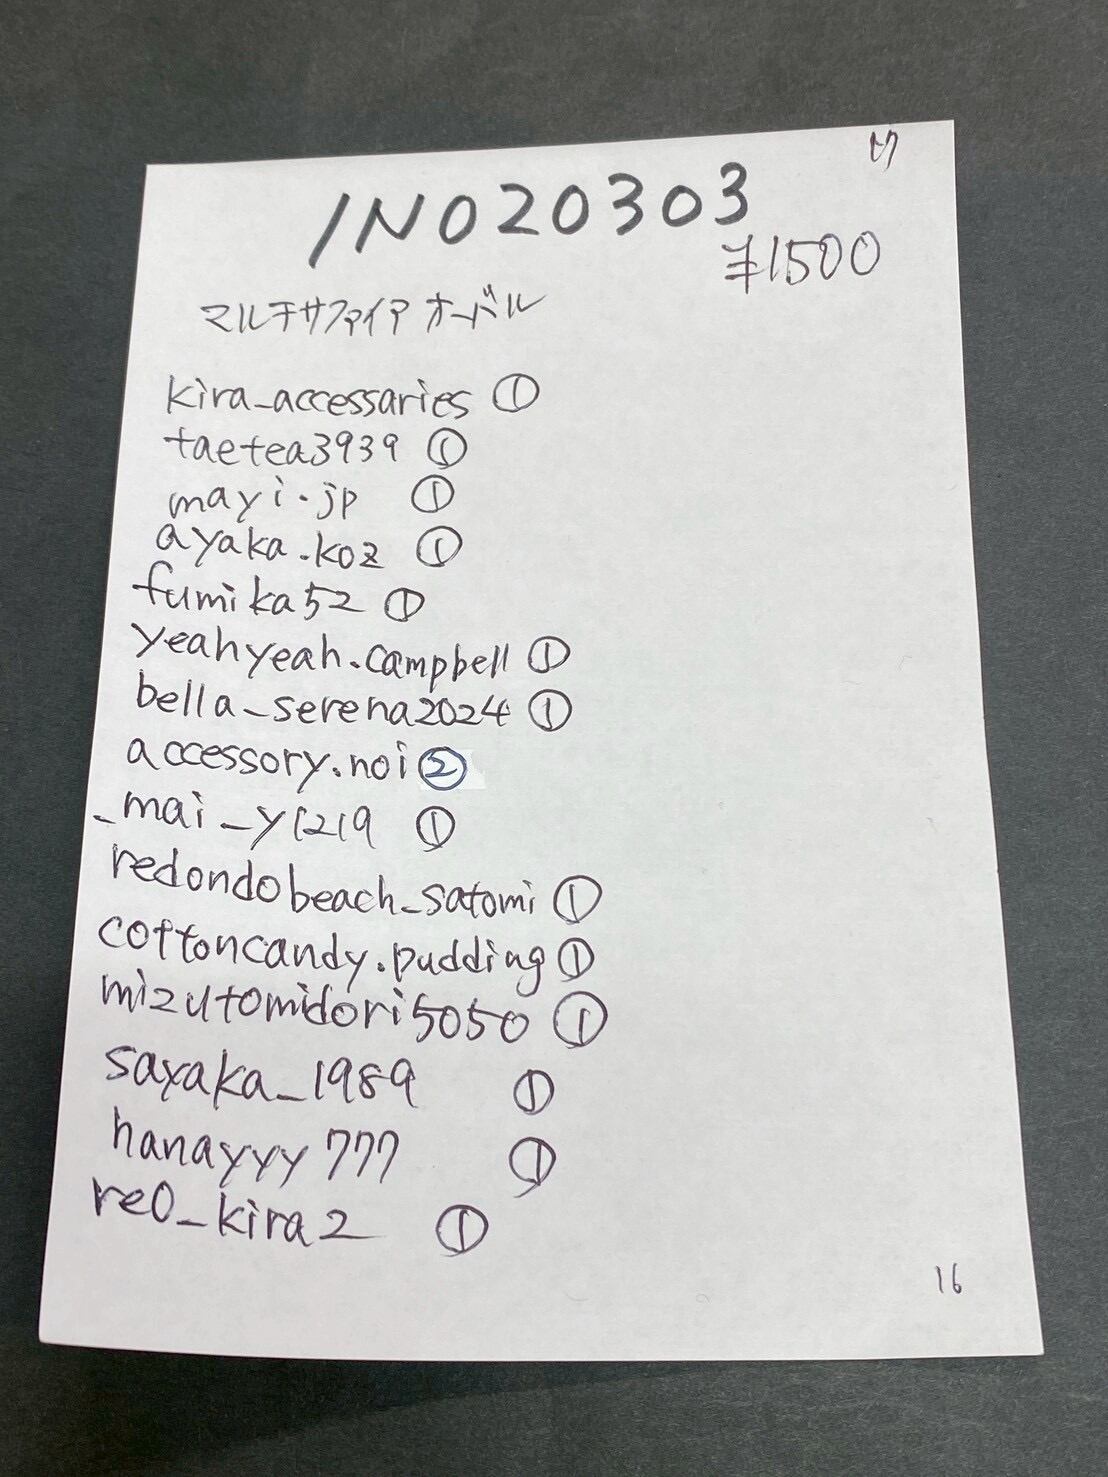 INO20303
¥1500
マルチサファイア オーバル
kira_accessaries ①
taetea3939 ①
mayi.jp ①
ayaka.koz ①
fumika52 ①
yeahyeah.campbell ①
bella_serena2024 ①
accessory.noi ②
_mai_y1219 ①
redondobeach_satomi ①
cottoncandy.pudding ①
mizutomidori5050 ①
sayaka_1989 ①
hanayyy777 ①
re0_kira2 ①
16